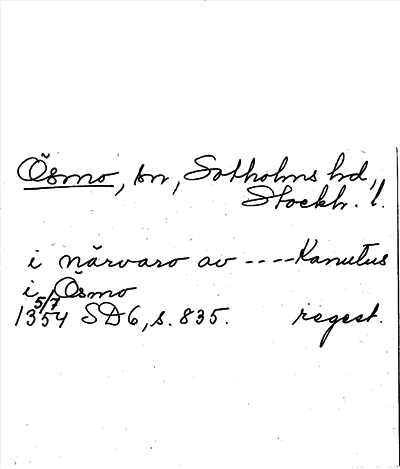 Ösmo, sn, Sotholms hd,
Stockh. l.
i närvaro av ---- Kanutus
i Ösmo
1354 5/7 SD6, s. 835. regest.